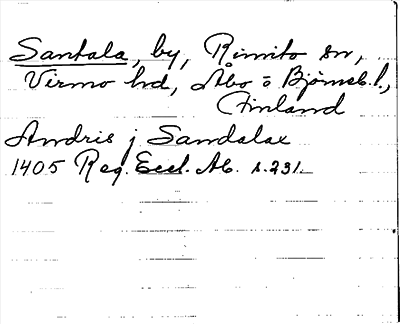 Santala, by, Rimito sn,
Virmo hd, Åbo o Björneb. l.,
Finland
Andris j Sandalax
1405 Reg. Eccl. Ab. s. 231.